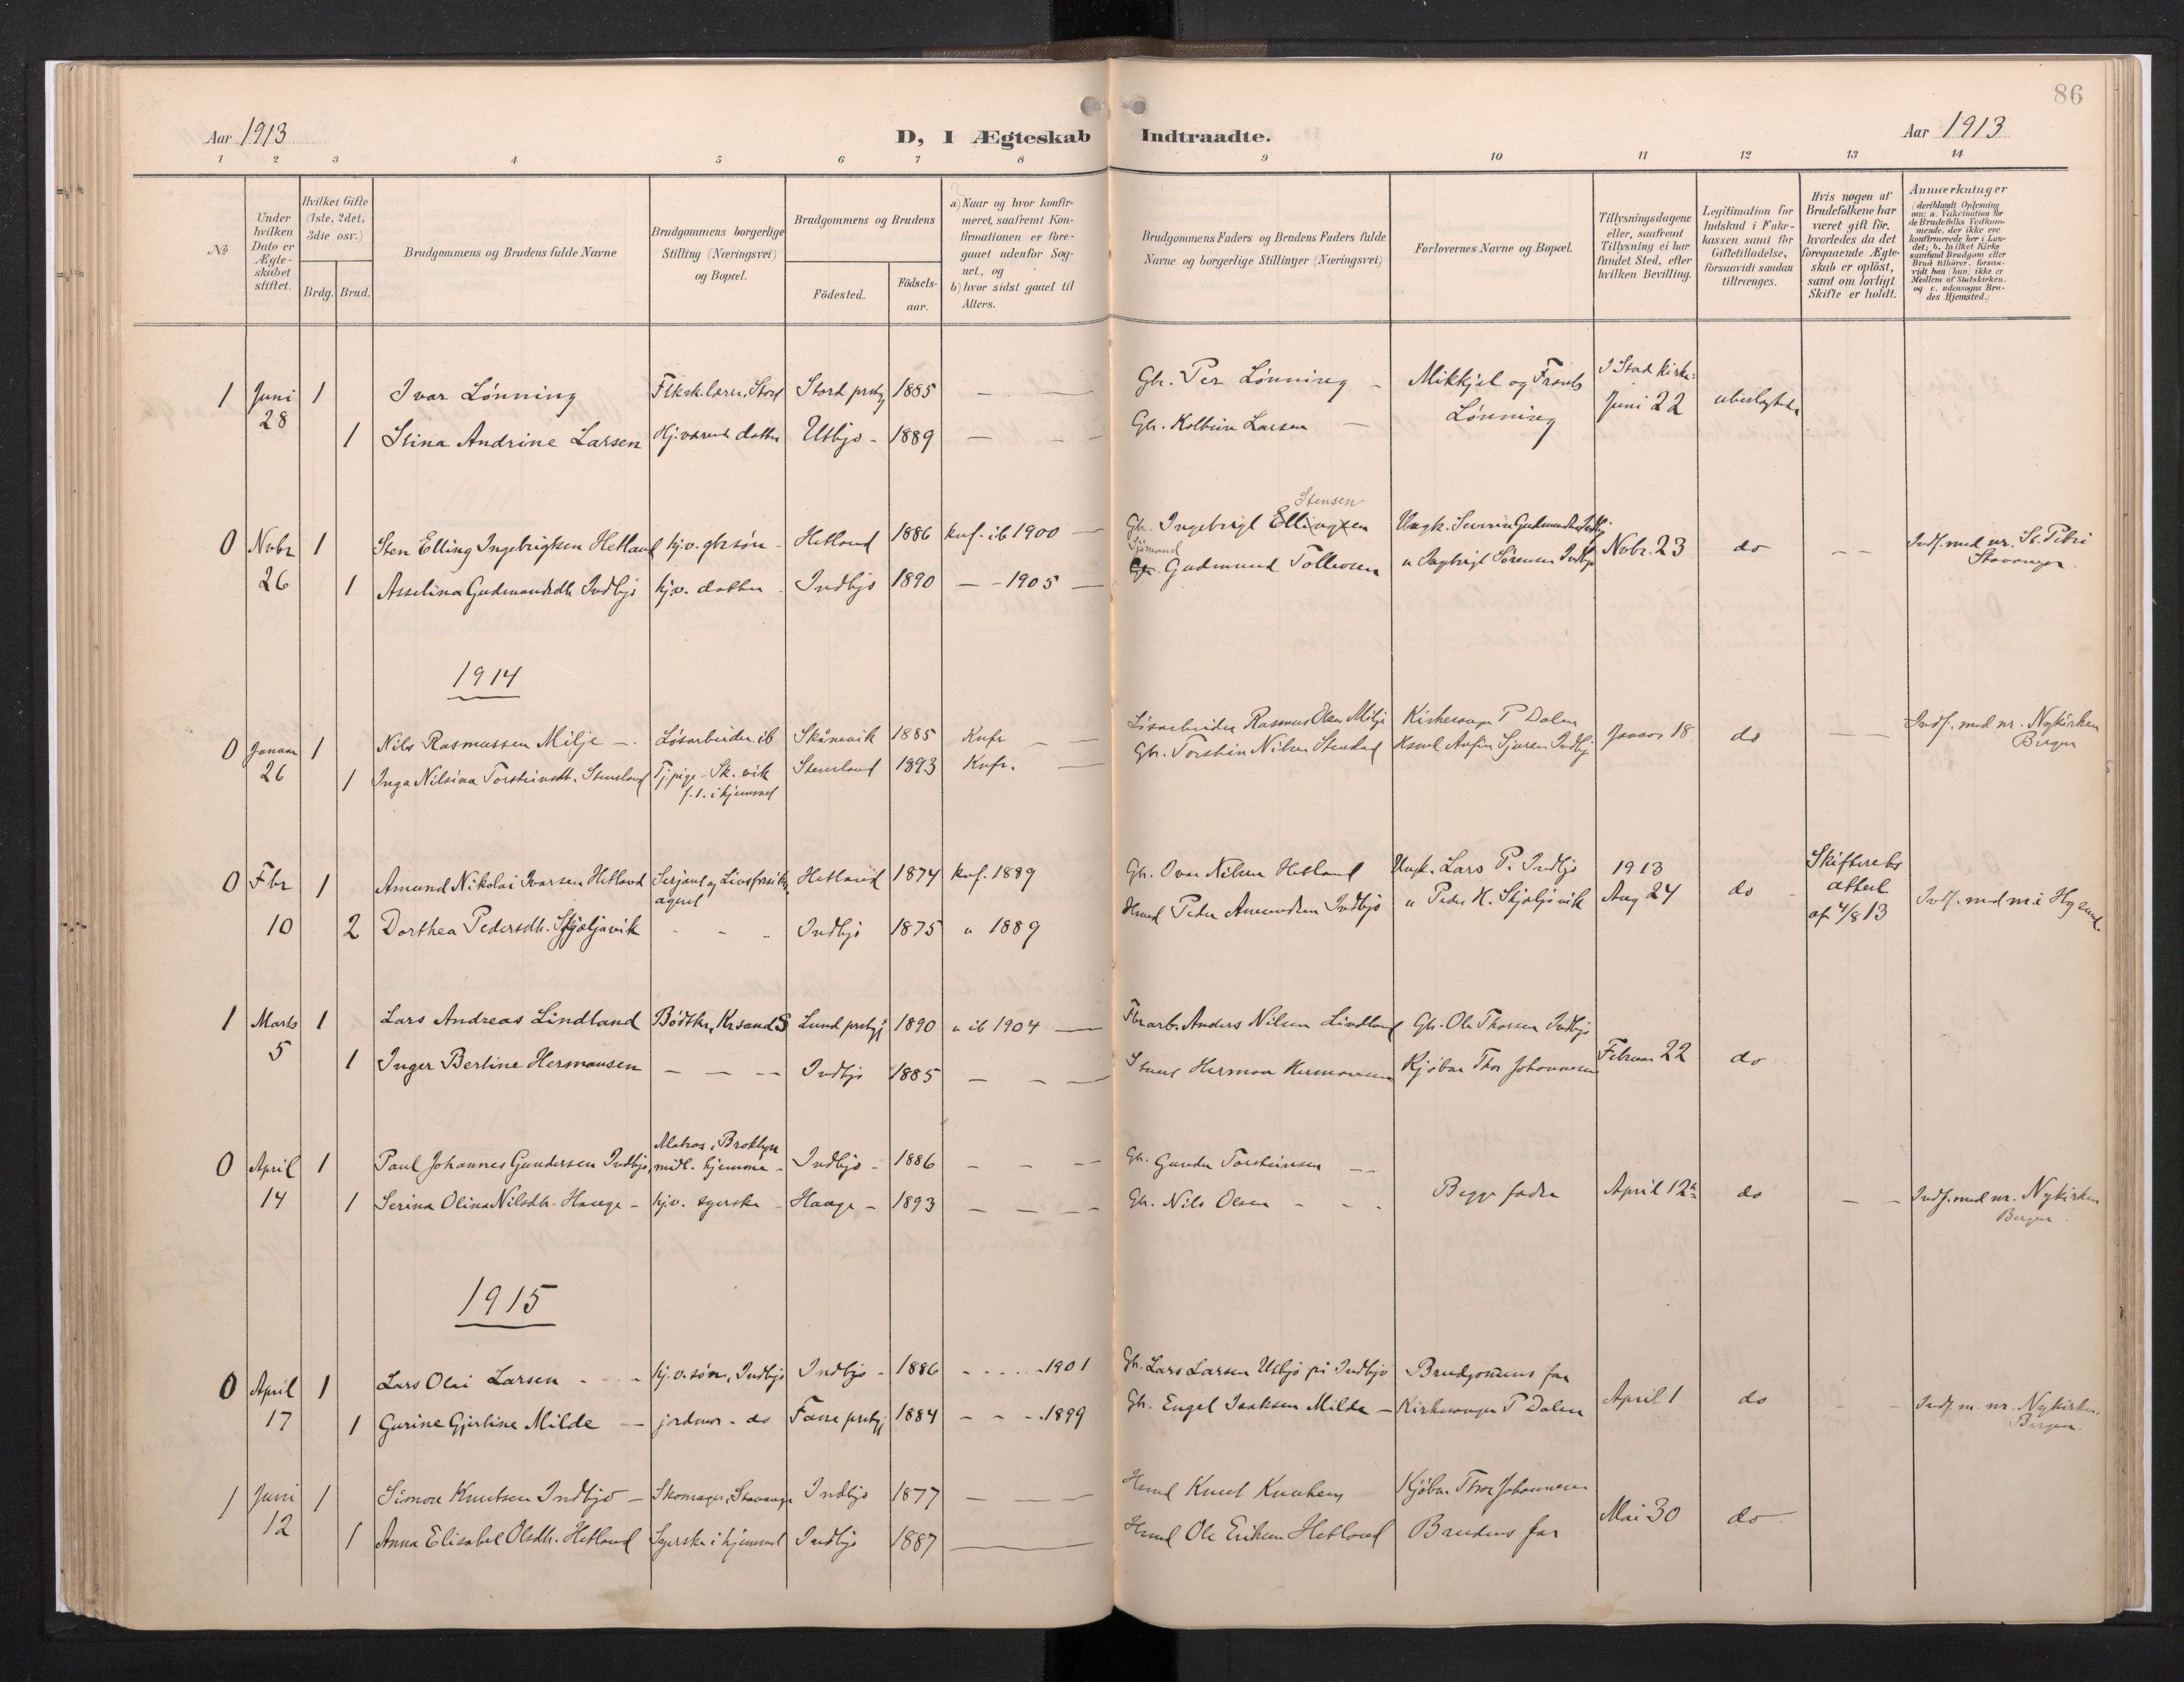 86
Aar 1913
D, I Ægteskab Indtraadte.
Aar 1913
1 2 3 4 5 6 7 8 9 10 11 12 13 14
№
Under hvilken Dato er Ægteskabet stiftet.
Hvilket Gifte (1ste, 2det, 3die osv.)
Brdg. Brud.
Brudgommens og Brudens fulde Navne
Brudgommens borgerlige Stilling (Næringsvei) og Bopæl.
Brudgommens og Brudens
Födested.
Födselsaar.
a) Naar og hvor konfirmeret, saafremt Konfirmationen er foregaaet udenfor Sognet, og
b) hvor sidst gaaet til Alters.
Brudgommens Faders og Brudens Faders fulde Navne og borgerlige Stillinger (Næringsvei)
Forlovernes Navne og Bopæl.
Tillysningsdagene eller, saafremt Tillysning ei har fundet Sted, efter hvilken Bevilling.
Legitimation for Indskud i Enkekassen samt for Giftetilladelse, forsaavidt saadan tiltrænges.
Hvis nogen af Brudefolkene har været gift för, hvorledes da det foregaaende Ægteskab er oplöst, samt om lovligt Skifte er holdt.
Anmærkninger (deriblandt Oplysning om: a. Vakcination for de Brudefolks Vedkommende, der ikke ere konfirmerede her i Landet; b. hvilket Kirkesamfund Brudgom eller Brud tilhörer, forsaavidt han (hun) ikke er Medlem af Statskirken, og c. udensogns Brudes Hjemsted.)
1 Juni 1 Ivar Lönning Flksk.lærer, Stord Stord prstgj 1885 — — Gbr. Per Lönning – Mikkjel og Frants I Stord kirke:
28 1 Stina Andrine Larsen Hj.værende datter Utbjo - 1889 — — Gbr. Kolbein Larsen — Lönning Juni 22 ubeslægtede
Stensen
0 Nvbr 1 Sten Elling Ingebrigtsen Hetland hj.v. gbr.søn - Hetland 1886 knf. ib 1900 — Gbr. Ingebrigt Ellingsen Ungk. Severin Gudmundsen Indbjo
Sjömand
26 1 Asselina Gudmundsdtr. Indbjo hj.v. datter - Indbjo 1890 — - 1905 — Gbr. Gudmund Tollevsen " Ingebrigt Sörensen Indbjo Nvbr. 23 do – – Indf. med nr. St. Petri Stavanger
1914
0 Januar 1 Nils Rasmussen Milje —. Lösarbeider ib Skånevik 1885 Knfr — — Lösarbeider Rasmus Olsen Milje Kirkesanger P Dalen
26 1 Inga Nilsina Torsteinsdtr. Stensland Tj.pige - Sk.vik f.t. i hjemmet Stensland 1893 Knfr. — Gbr. Torstein Nilsen Januar 18 do — Indf. med nr. Nykirken Bergen
0 Fbr 1 Amund Nikolai Ivarsen Hetland Serjant og Livsforsikr. agent Hetland 1874 knf. 1889 Gbr. Ivar Nilsen Hetland Ungk. Lars P. Indbjo 1913 Skifteretsattest af 4/8 13
10 2 Dorthea Pedersdtr. Skjøljavik - - - Indbjo 1875 " 1889 Hmd Peder Amundsen Indbjo " Peder H. Skjøljavik Aug 24 do Indf. med nr. i
1 Marts 1 Lars Andreas Lindland Bödtker, KrsandS Lund prstgj 1890 " ib 1904 — Anders Nilsen Lindland Gbr. Ole Thorsen Indbjo
5 1 Inger Bertine Hermansen — — — Indbjo 1885 — — — Herman Hermansen Kjöbm Thor Johannesen Februar 22 do
0 April 1 Paul Johannes Gundersen Indbjo Matros, Broklyn midl. hjemme - Indbjo - 1886 — — — Gbr. Gunder Torsteinsen —
14 1 Serina Olina Nilsdtr. Haage - hj.v. syerske - Haage - 1893 — — — Gbr. Nils Olsen - - - Begge fædre April 12 do — — Indf. med nr. Nykirken Bergen
1915
0 April 1 Lars Olai Larsen - - - hj.v. søn, Indbjo Indbjo - 1886 - - - - 1901 Gbr. Lars Larsen Utbjo på Indbjo Brudgommens far
17 1 Gurine Gjertine Milde — jordmor - do Fane prstgj 1884 - - - 1899 Gbr. Engel Isaksen Milde — Kirkesanger P Dalen April 1 do Indf. m. nr. Nykirken, Bergen.
1 Juni 1 Simon Knutsen Indbjo — Skomager, Stavanger Indbjo 1877 — — — Hmd Knut Knutsen Kjöbm Thor Johannesen
12 1 Anna Elisabet Olsdtr. Hetland Syerske i hjemmet Indbjo 1887 — Hmd Ole Eriksen Hetland Brudens far Mai 30 do